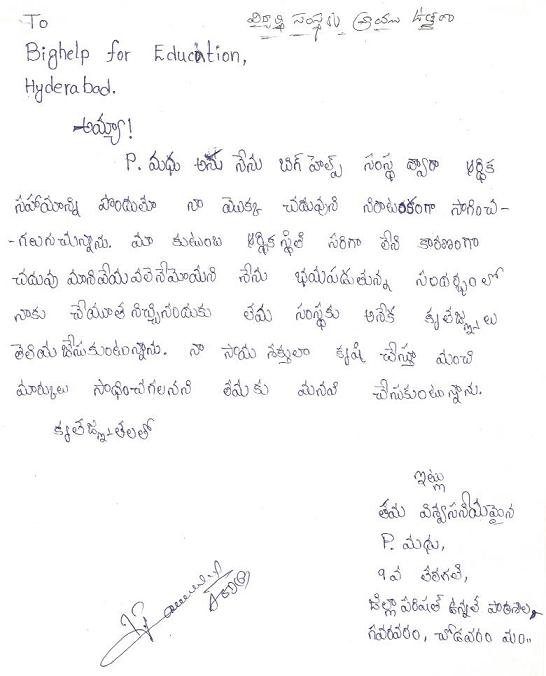 To
విద్యార్థి సంస్థకు వ్రాయు ఉత్తరం
Bighelp for Education,
Hyderabad.
అయ్యా!
P. మధు అను నేను బిగ్ హెల్ప్ సంస్థ ద్వారా ఆర్థిక
సహాయాన్ని పొందుతూ నా యొక్క చదువుని నిరాటంకంగా సాగించ-
-గలుగుచున్నాను. మా కుటుంబ ఆర్థిక స్థితి సరిగా లేని కారణంగా
చదువు మానివేయవలెనేమోయని నేను భయపడుతున్న సందర్భంలో
నాకు చేయూత నిచ్చినందుకు తమ సంస్థకు అనేక కృతజ్ఞతలు
తెలియజేసుకుంటున్నాను. నా సాయ శక్తులా కృషి చేస్తూ మంచి
మార్కులు సాధించగలనని తమకు మనవి చేసుకుంటున్నాను.
కృతజ్ఞతలతో
ఇట్లు
తమ విశ్వసనీయమైన
P. మధు,
9వ తరగతి,
జిల్లా పరిషత్ ఉన్నత పాఠశాల,
గవరవరం, చోడవరం మం..